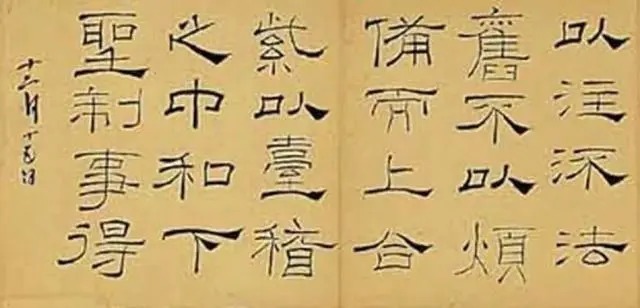 以注法
舊不以煩
備而上合
紫以臺稽
之中和下
聖制事得
十二月十五日